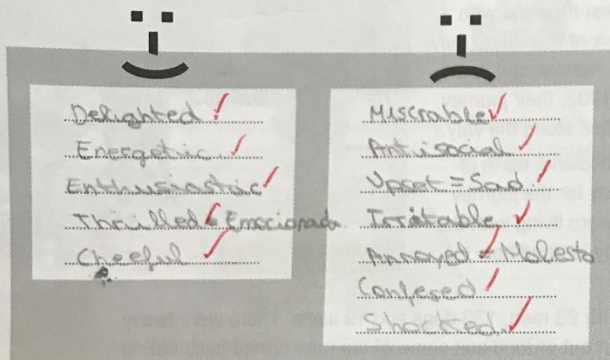 Delighted
Energetic
Enthusiastic
Thrilled = Emocionada
Cheeful
Miserable
Antisocial
Upset = Sad
Irritable
Annoyed = Molesto
Confesed
Shocked